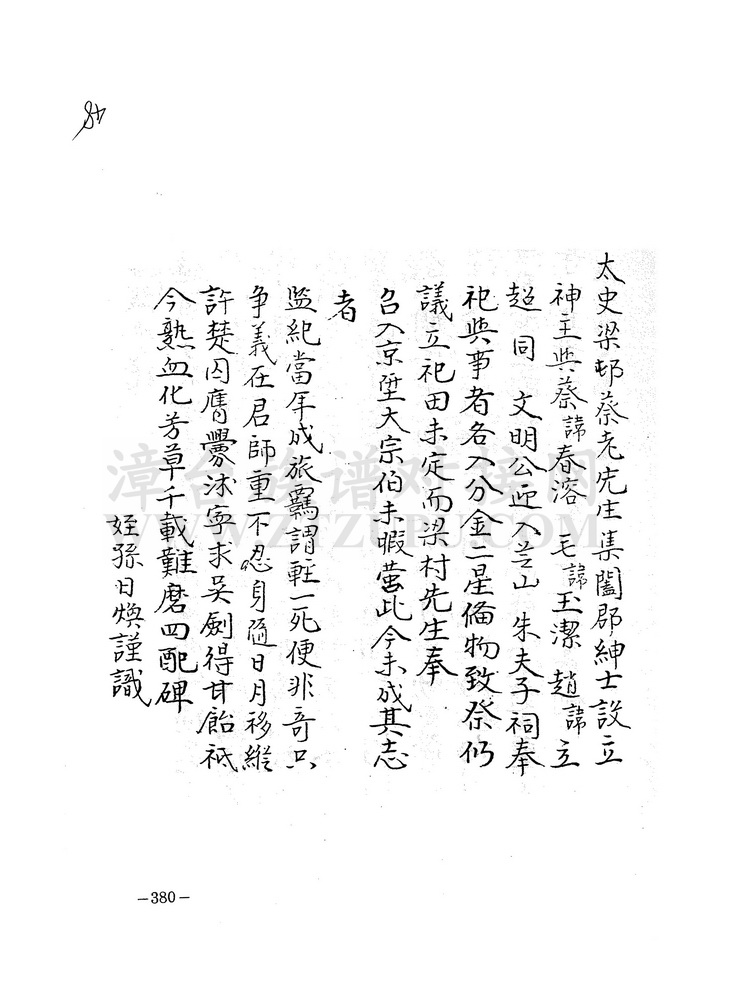 太史梁邨蔡老先生集闔郡紳士設立
神主與蔡諱春溶 毛諱玉潔 趙諱立
超同 文明公迎入芝山 朱夫子祠奉
祀與事者各入分金二星俻物致祭仍
議立祀田未定而梁村先生奉
召入京陞大宗伯未暇營此今未成其志
者
監紀當年成旅羈謂輕一死便非奇只
争義在君師重不忍身隨日月移縱
許楚囚膺釁沐寧求吴劍得甘飴祗
今熱血化芳草千載難磨四配碑
姪孫日煥謹識
漳台族谱对接网
WWW.ZTZUPU.COM
－380－